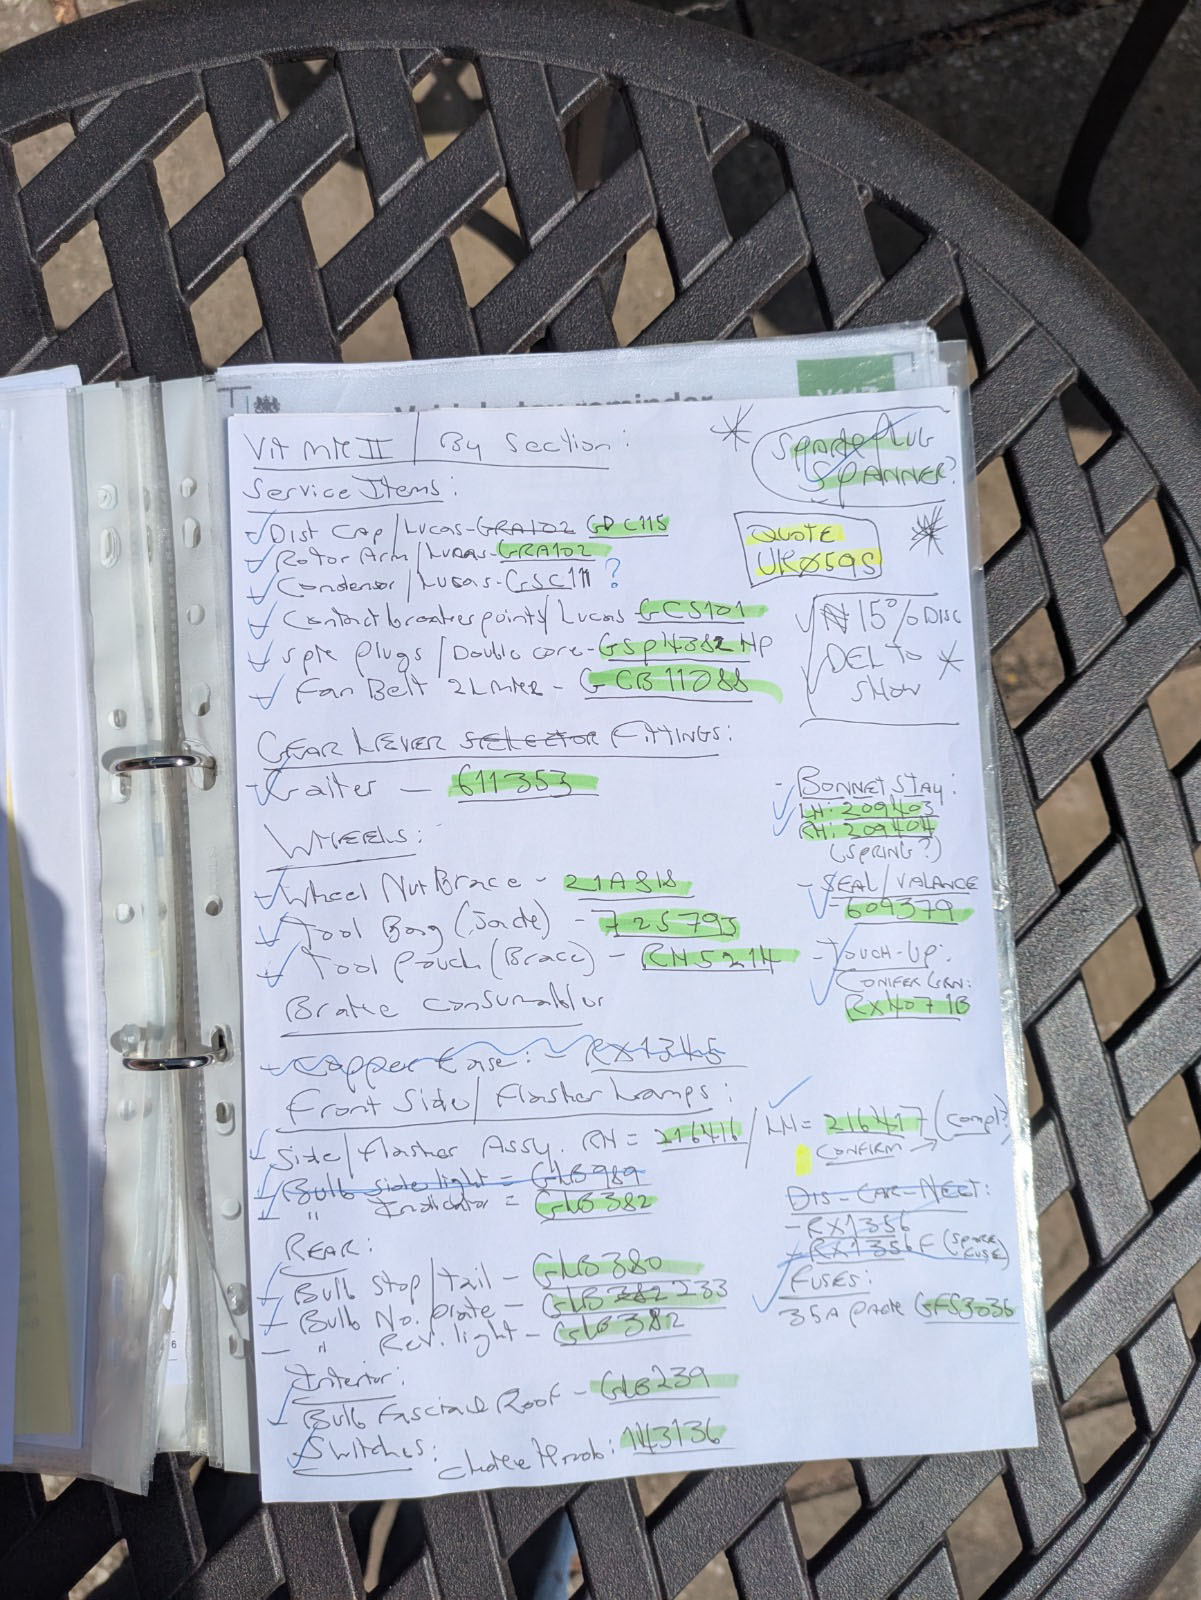 Vit MK II / By Section:
Service Items:
Dist Cap/Lucas-GRA102 GDC115
Rotor Arm/Lucas-GRA102
Condensor/Lucas-GSC111 ?
Contact breaker points/Lucas GCS101
Spk Plugs/Double core-GSP4382 HP
Fan Belt 2L MK2 - GCB11088
GEAR LEVER SELECTOR FITTINGS:
Gaiter - 611353
WHEELS:
Wheel Nut Brace - 21A818
Tool Bag (Jade) - 725793
Tool Pouch (Brace) - RH5214
Brake Consumables
Copper Ease: - RX1345
Front Side/Flasher Lamps:
Side/Flasher Assy. RH = 216416 / LH = 216417 (Compl?)
CONFIRM →
Bulb side light = GLB989
" Indicator = GLB382
REAR:
Bulb Stop/tail - GLB380
Bulb No. plate - GLB382 233
" Rev. light - GLB382
Interior:
Bulb Fascia & Roof - GLB239
Switches: Choke Knob: 143136
SPARK PLUG
SPANNER?
QUOTE
UK0595
15% DISC
DEL TO
SHOW
- BONNET STAY:
LH: 209403
RH: 209404
(SPRING?)
- SEAL/VALANCE
- 609379
- TOUCH-UP:
CONIFER GRN:
RX4071B
DIS-CAR-NECT:
- RX1356
- RX1356F (SPARE FUSE)
FUSES:
35A GFS3035
Vehicle tax reminder
V117